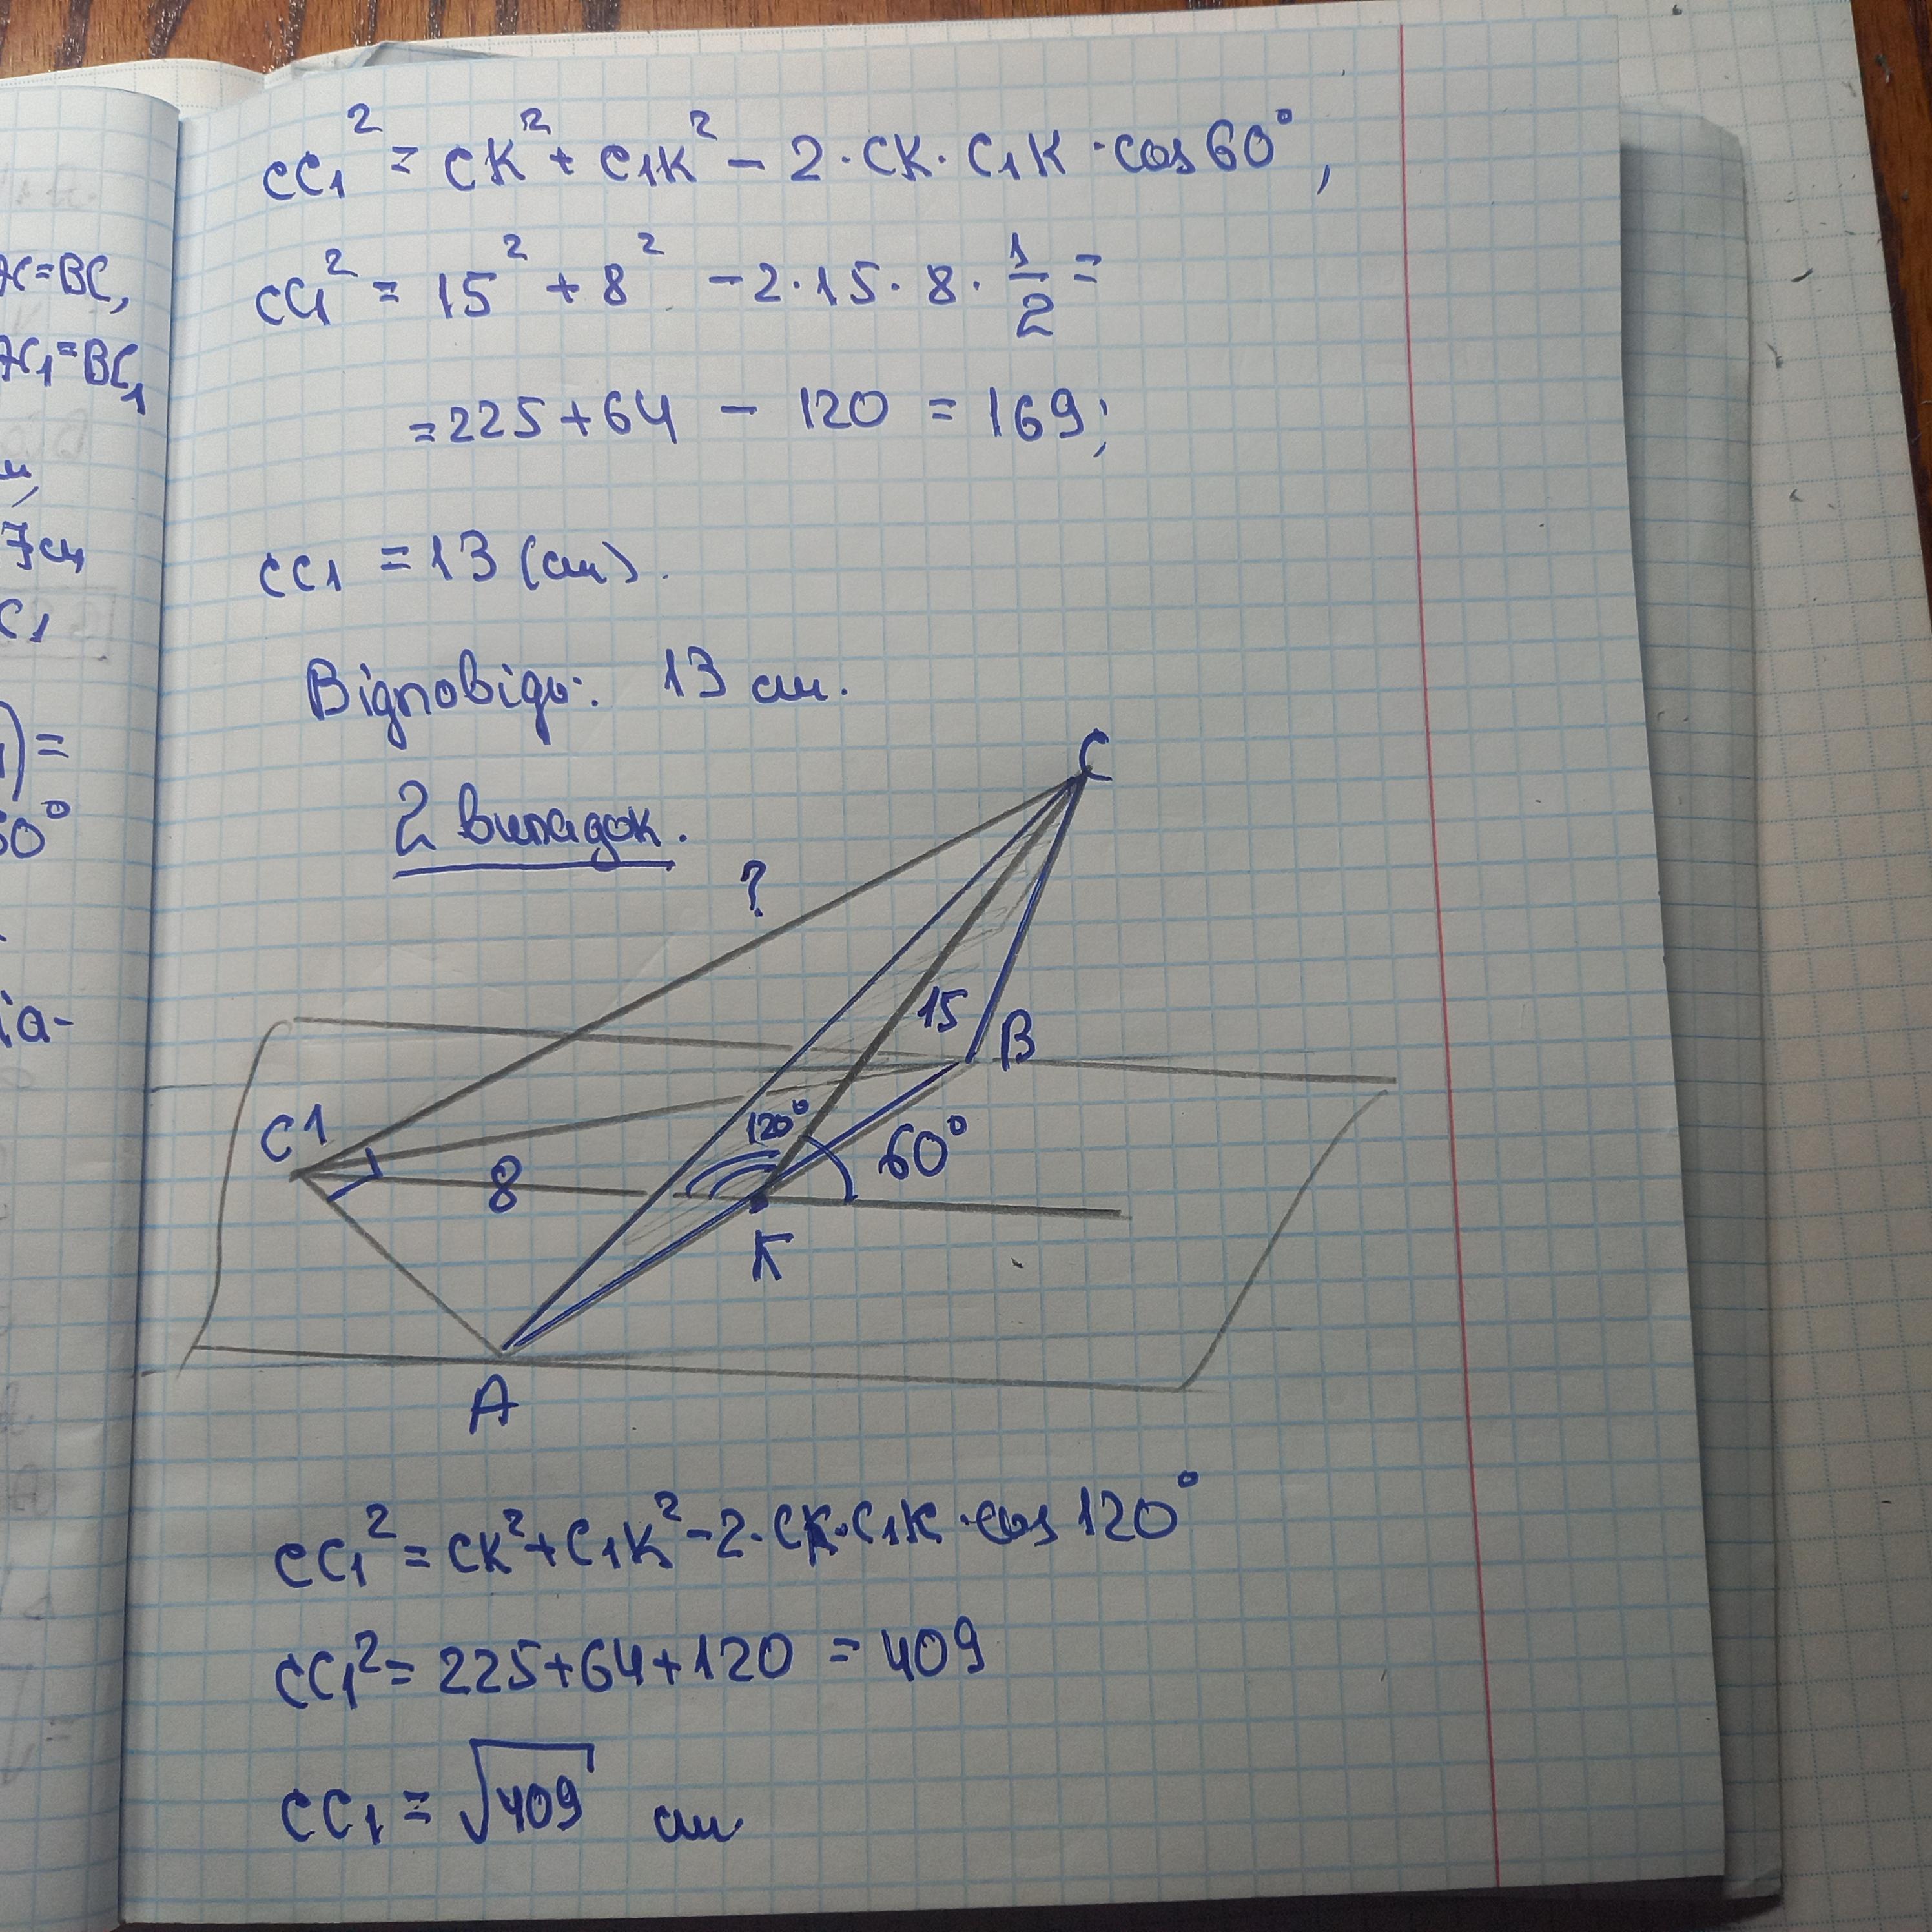 CC₁² = CK² + C₁K² − 2·CK·C₁K·cos60°,
CC₁² = 15² + 8² − 2·15·8·1/2 =
= 225 + 64 − 120 = 169;
CC₁ = 13 (см).
Відповідь: 13 см.
2 випадок.
C
?
15
B
C1
120°
60°
8
K
A
CC₁² = CK² + C₁K² − 2·CK·C₁K·cos 120°
CC₁² = 225 + 64 + 120 = 409
CC₁ = √409 см
=BC,
=BC₁
7см
C₁
) =
60°